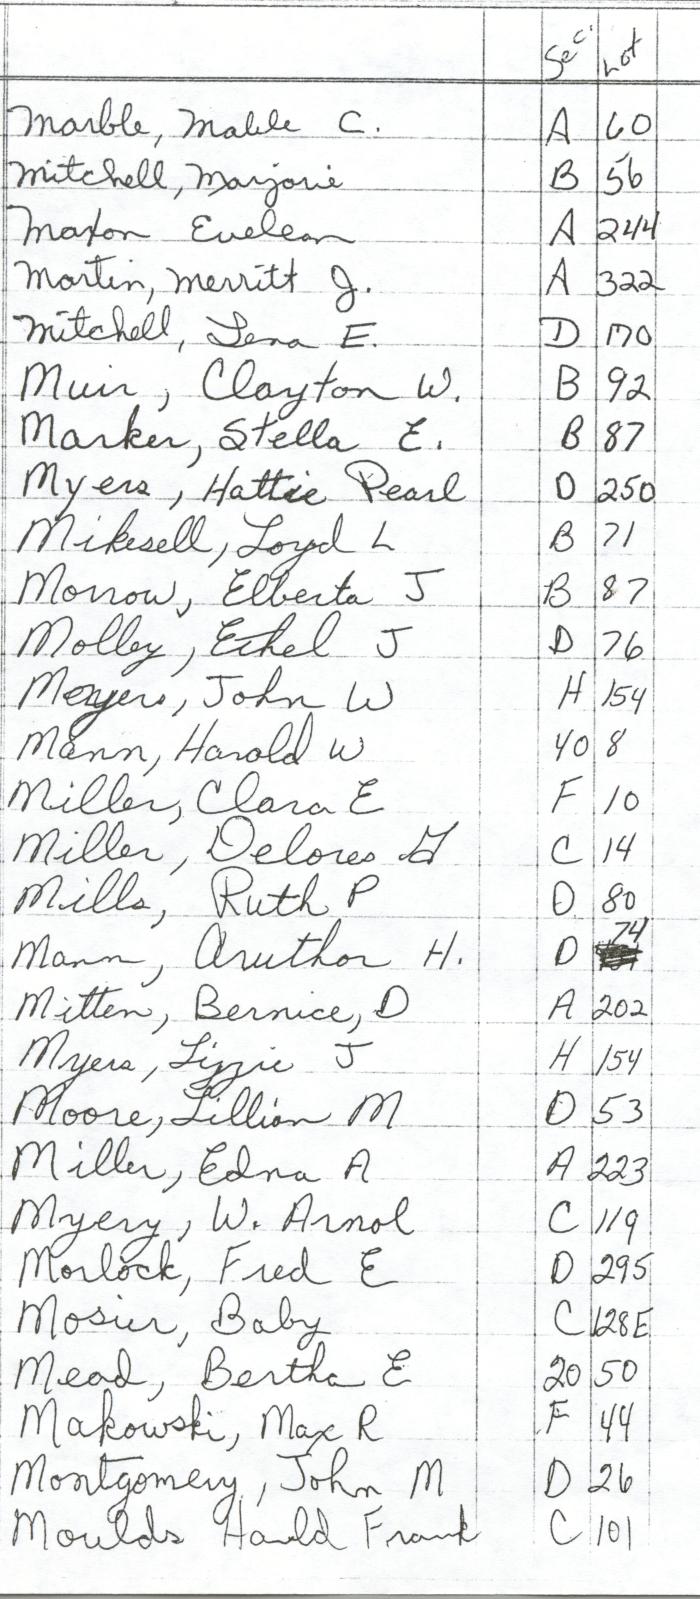 Sec. Lot
Marble, Mable C. A 60
Mitchell, Marjorie B 56
Maxon Evelean A 244
Martin, Merritt J. A 322
Mitchell, Lena E. D 170
Muir, Clayton W. B 92
Marker, Stella E. B 87
Myers, Hattie Pearl D 250
Mikesell, Loyd L B 71
Morrow, Elberta J B 87
Molley, Ethel J D 76
Meyers, John W H 154
Mann, Harold W 40 8
Miller, Clara E F 10
Miller, Delores G C 14
Mills, Ruth P D 80
Mann, Aruthor H. D 74
Mitten, Bernice, D A 202
Myers, Lizzie J H 154
Moore, Lillian M D 53
Miller, Edna A A 223
Myery, W. Arnol C 119
Morlock, Fred E D 295
Mosier, Baby C 128E
Mead, Bertha E 20 50
Makowski, Max R F 44
Montgomery, John M D 26
Moulds Harold Frank C 101